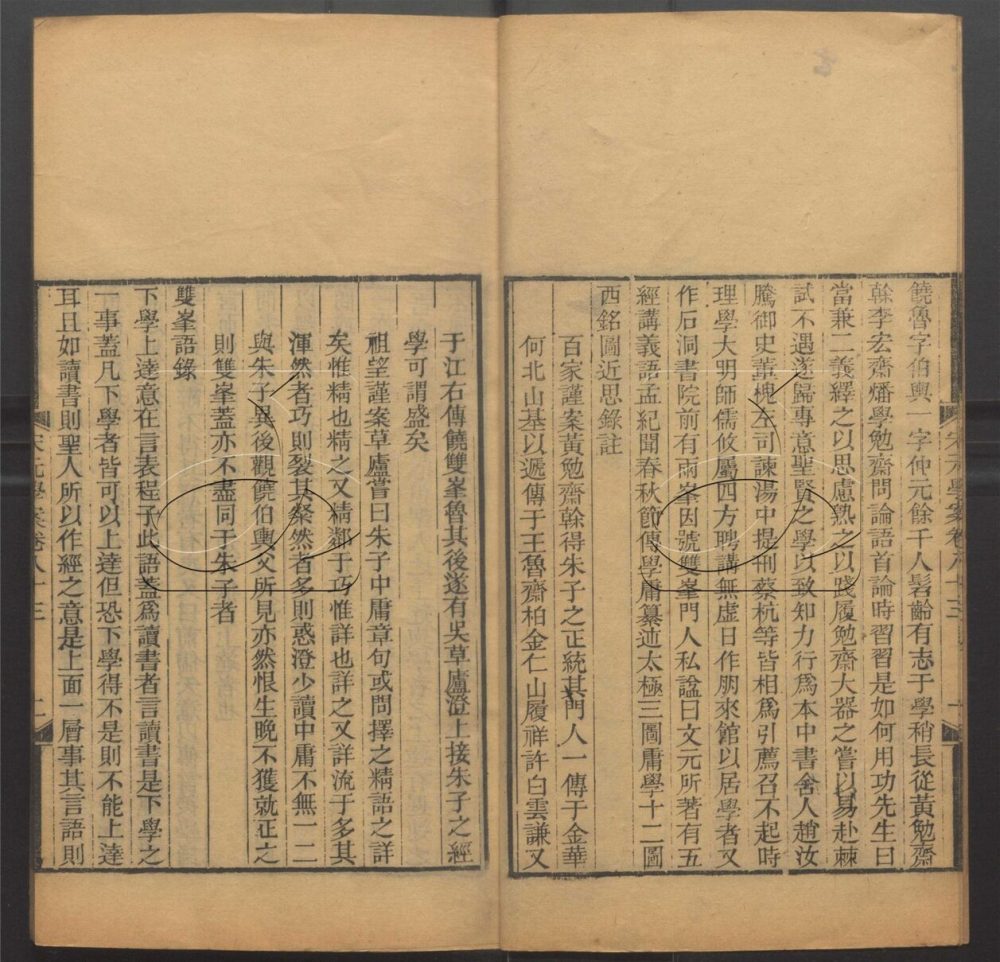 饒魯字伯輿一字仲元餘干人髫齡有志于學稍長從黃勉齋
榦李宏齋燔學勉齋問論語首論時習習是如何用功先生曰
當兼二義繹之以思慮熟之以踐履勉齋大器之嘗以易赴棘
試不遇遂歸專意聖賢之學以致知力行爲本中書舍人趙汝
騰御史董槐左司諫湯中提刑蔡杭等皆相爲引薦召不起時
理學大明師儒攸屬四方聘講無虛日作朋來館以居學者又
作石洞書院前有兩峯因號雙峯門人私諡曰文元所著有五
經講義語孟紀聞春秋節傳學庸纂述太極三圖庸學十二圖
西銘圖近思錄註
百家謹案黃勉齋榦得朱子之正統其門人一傳于金華
何北山基以遞傳于王魯齋柏金仁山履祥許白雲謙又
于江右傳饒雙峯魯其後遂有吳草廬澄上接朱子之經
學可謂盛矣
祖望謹案草廬嘗曰朱子中庸章句或問擇之精語之詳
矣惟精也精之又精鄰于巧惟詳也詳之又詳流于多其
渾然者巧則裂其粲然者多則惑澄少讀中庸不無一二
與朱子異後觀饒伯輿父所見亦然恨生晚不獲就正之
則雙峯蓋亦不盡同于朱子者
雙峯語錄
下學上達意在言表程子此語蓋爲讀書者言讀書是下學之
一事蓋凡下學者皆可以上達但恐下學得不是則不能上達
耳且如讀書則聖人所以作經之意是上面一層事其言語則
宋元學案卷八十三